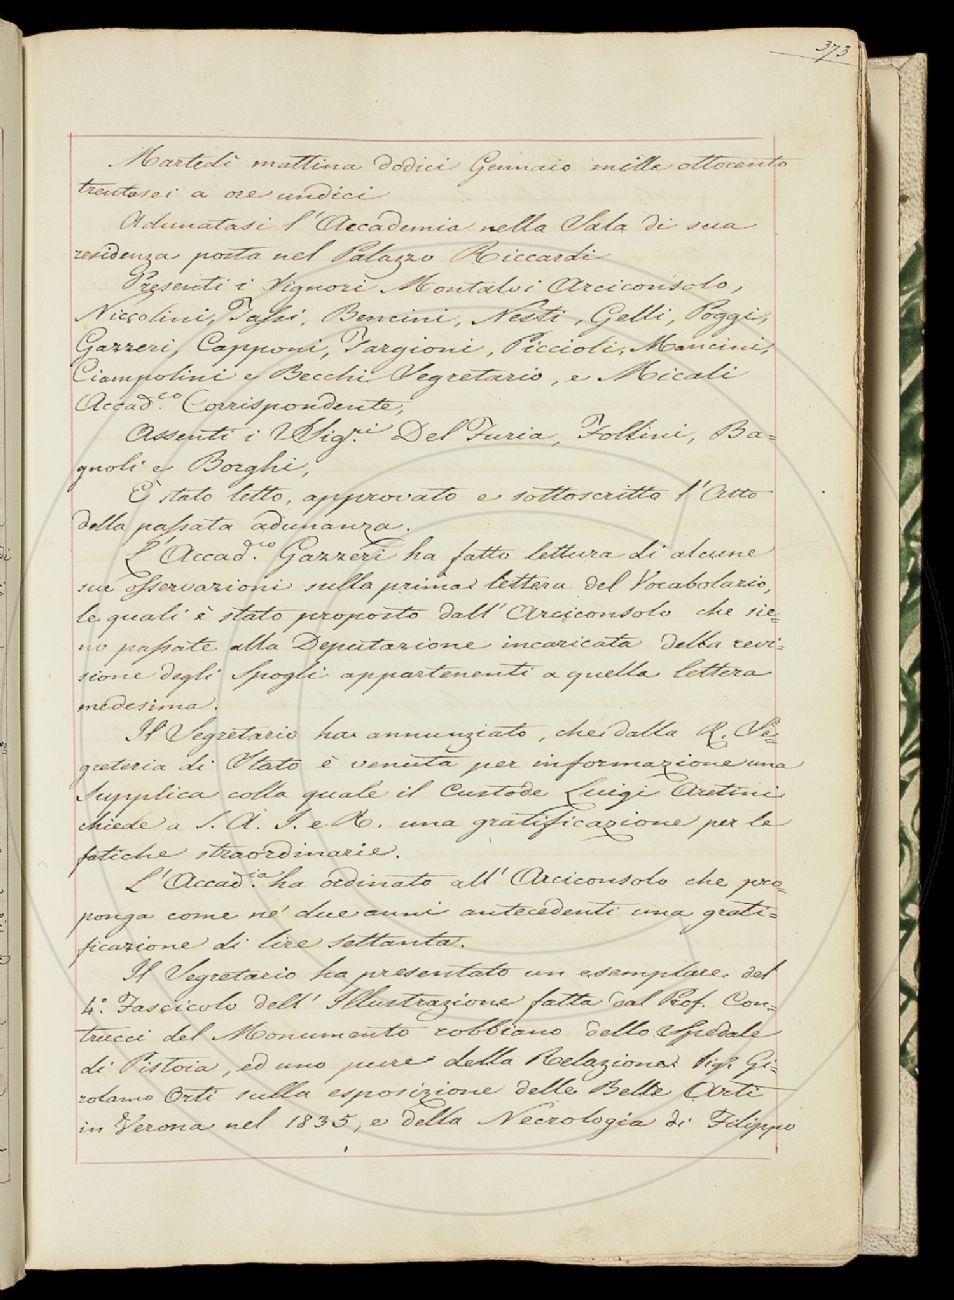 373
Martedì mattina dodici Gennaio mille ottocento
trentasei a ore undici
Adunatasi l'Accademia nella Sala di sua
residenza posta nel Palazzo Riccardi
Presenti i Signori Montalvi Arciconsolo,
Niccolini, Tassi, Bencini, Nesti, Gelli, Poggi,
Gazzeri, Capponi, Targioni, Piccioli, Mancini,
Ciampolini e Becchi Segretario, e Micali
Accad.co Corrispondente,
Assenti i Sig.ri Del Furia, Follini, Ba=
gnoli e Borghi,
È stato letto, approvato e sottoscritto l'Atto
della passata adunanza.
L'Accad.co Gazzeri ha fatto lettura di alcune
sue osservazioni sulla prima lettera del Vocabolario,
le quali è stato proposto dall'Arciconsolo che sie=
no passate alla Deputazione incaricata della revi=
sione degli Spogli appartenenti a quella lettera
medesima.
Il Segretario ha annunziato, che dalla R. Se=
greteria di Stato è venuta per informazione una
Supplica colla quale il Custode Luigi Aretini
chiede a S. A. I. e R. una gratificazione per le
fatiche straordinarie.
L'Accad.ia ha ordinato all'Arciconsolo che pro=
ponga come ne' due anni antecedenti una grati=
ficazione di lire settanta.
Il Segretario ha presentato un esemplare del
4.° Fascicolo dell'Illustrazione fatta dal Prof. Con=
trucci del Monumento robbiano dello Spedale
di Pistoia, ed uno pure della Relazione Sig.r Gi=
rolamo Orti sulla esposizione delle Belle Arti
in Verona nel 1835, e della Necrologia di Filippo